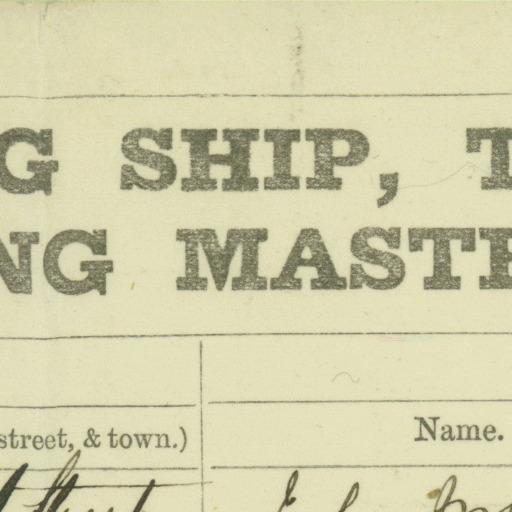 G SHIP, T
NG MASTE
street, & town.) Name.